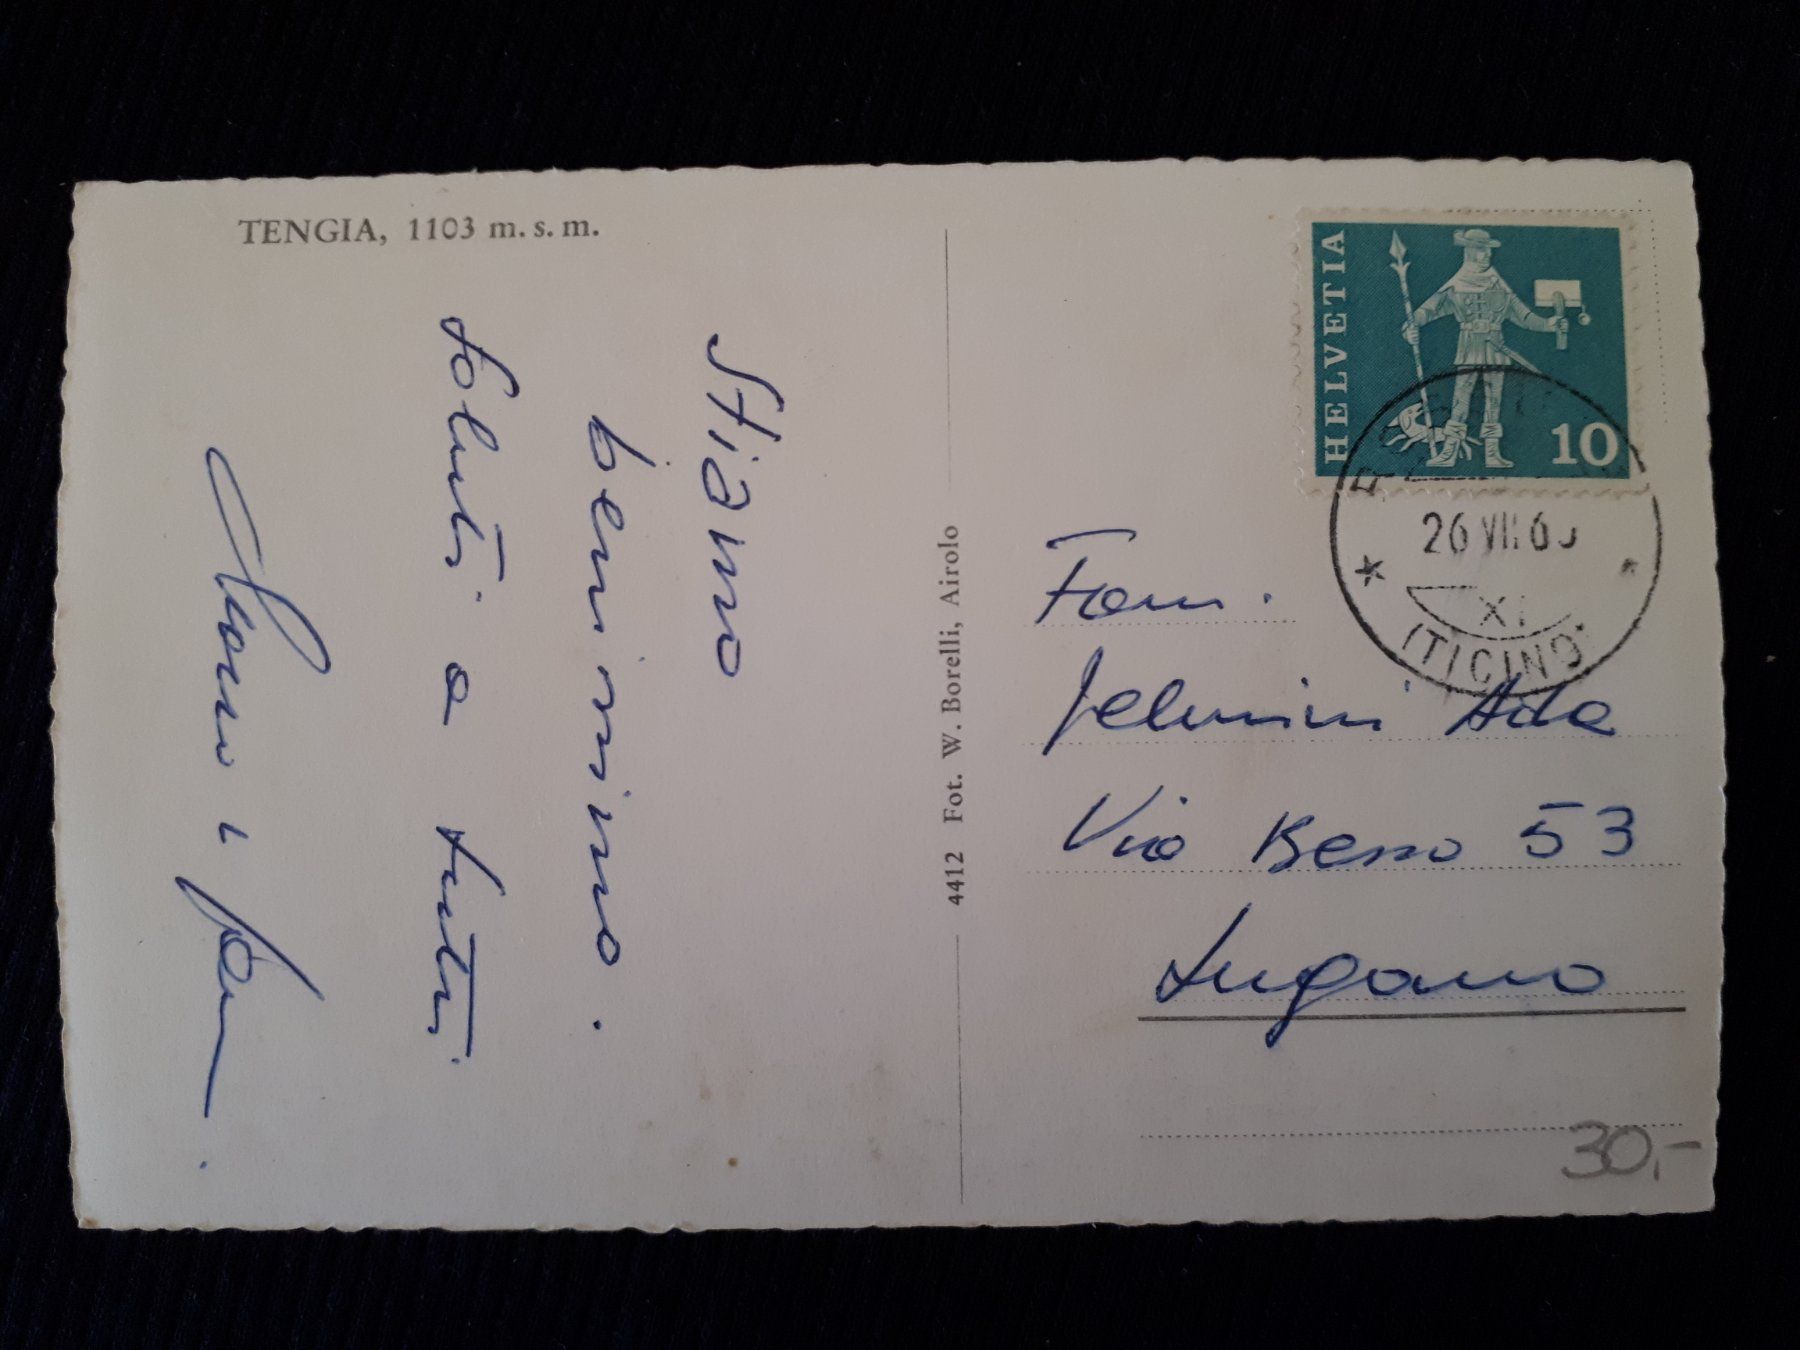 TENGIA, 1103 m. s. m.
Stiamo
benissimo.
Saluti a tutti
e fam
4412 Fot. W. Borelli, Airolo
HELVETIA
10
26 VII 6
(TICINO)
Fam.
Jelmini Ada
Via Besso 53
Lugano
30.-